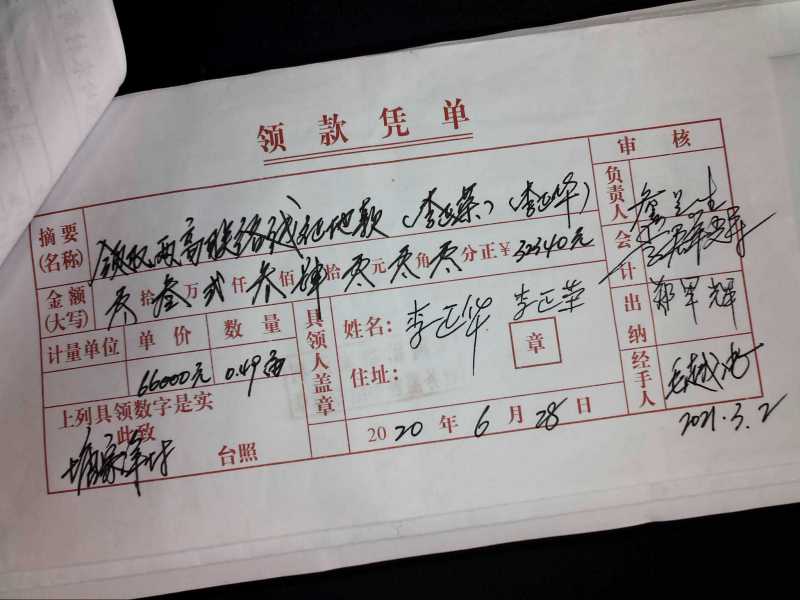 领款凭单
审核
摘要(名称) 领取两高联络线征地款(李正荣)(李正华)
负责人
金额(大写) 零拾叁万贰仟叁佰肆拾零元零角零分正¥32340元
会计
计量单位 单价 数量
66000元 0.49亩
具领人盖章
姓名: 李正华 李正荣
章
住址:
出纳 郑军辉
上列具领数字是实
此致
台照
2020年6月28日
经手人
2021.3.2